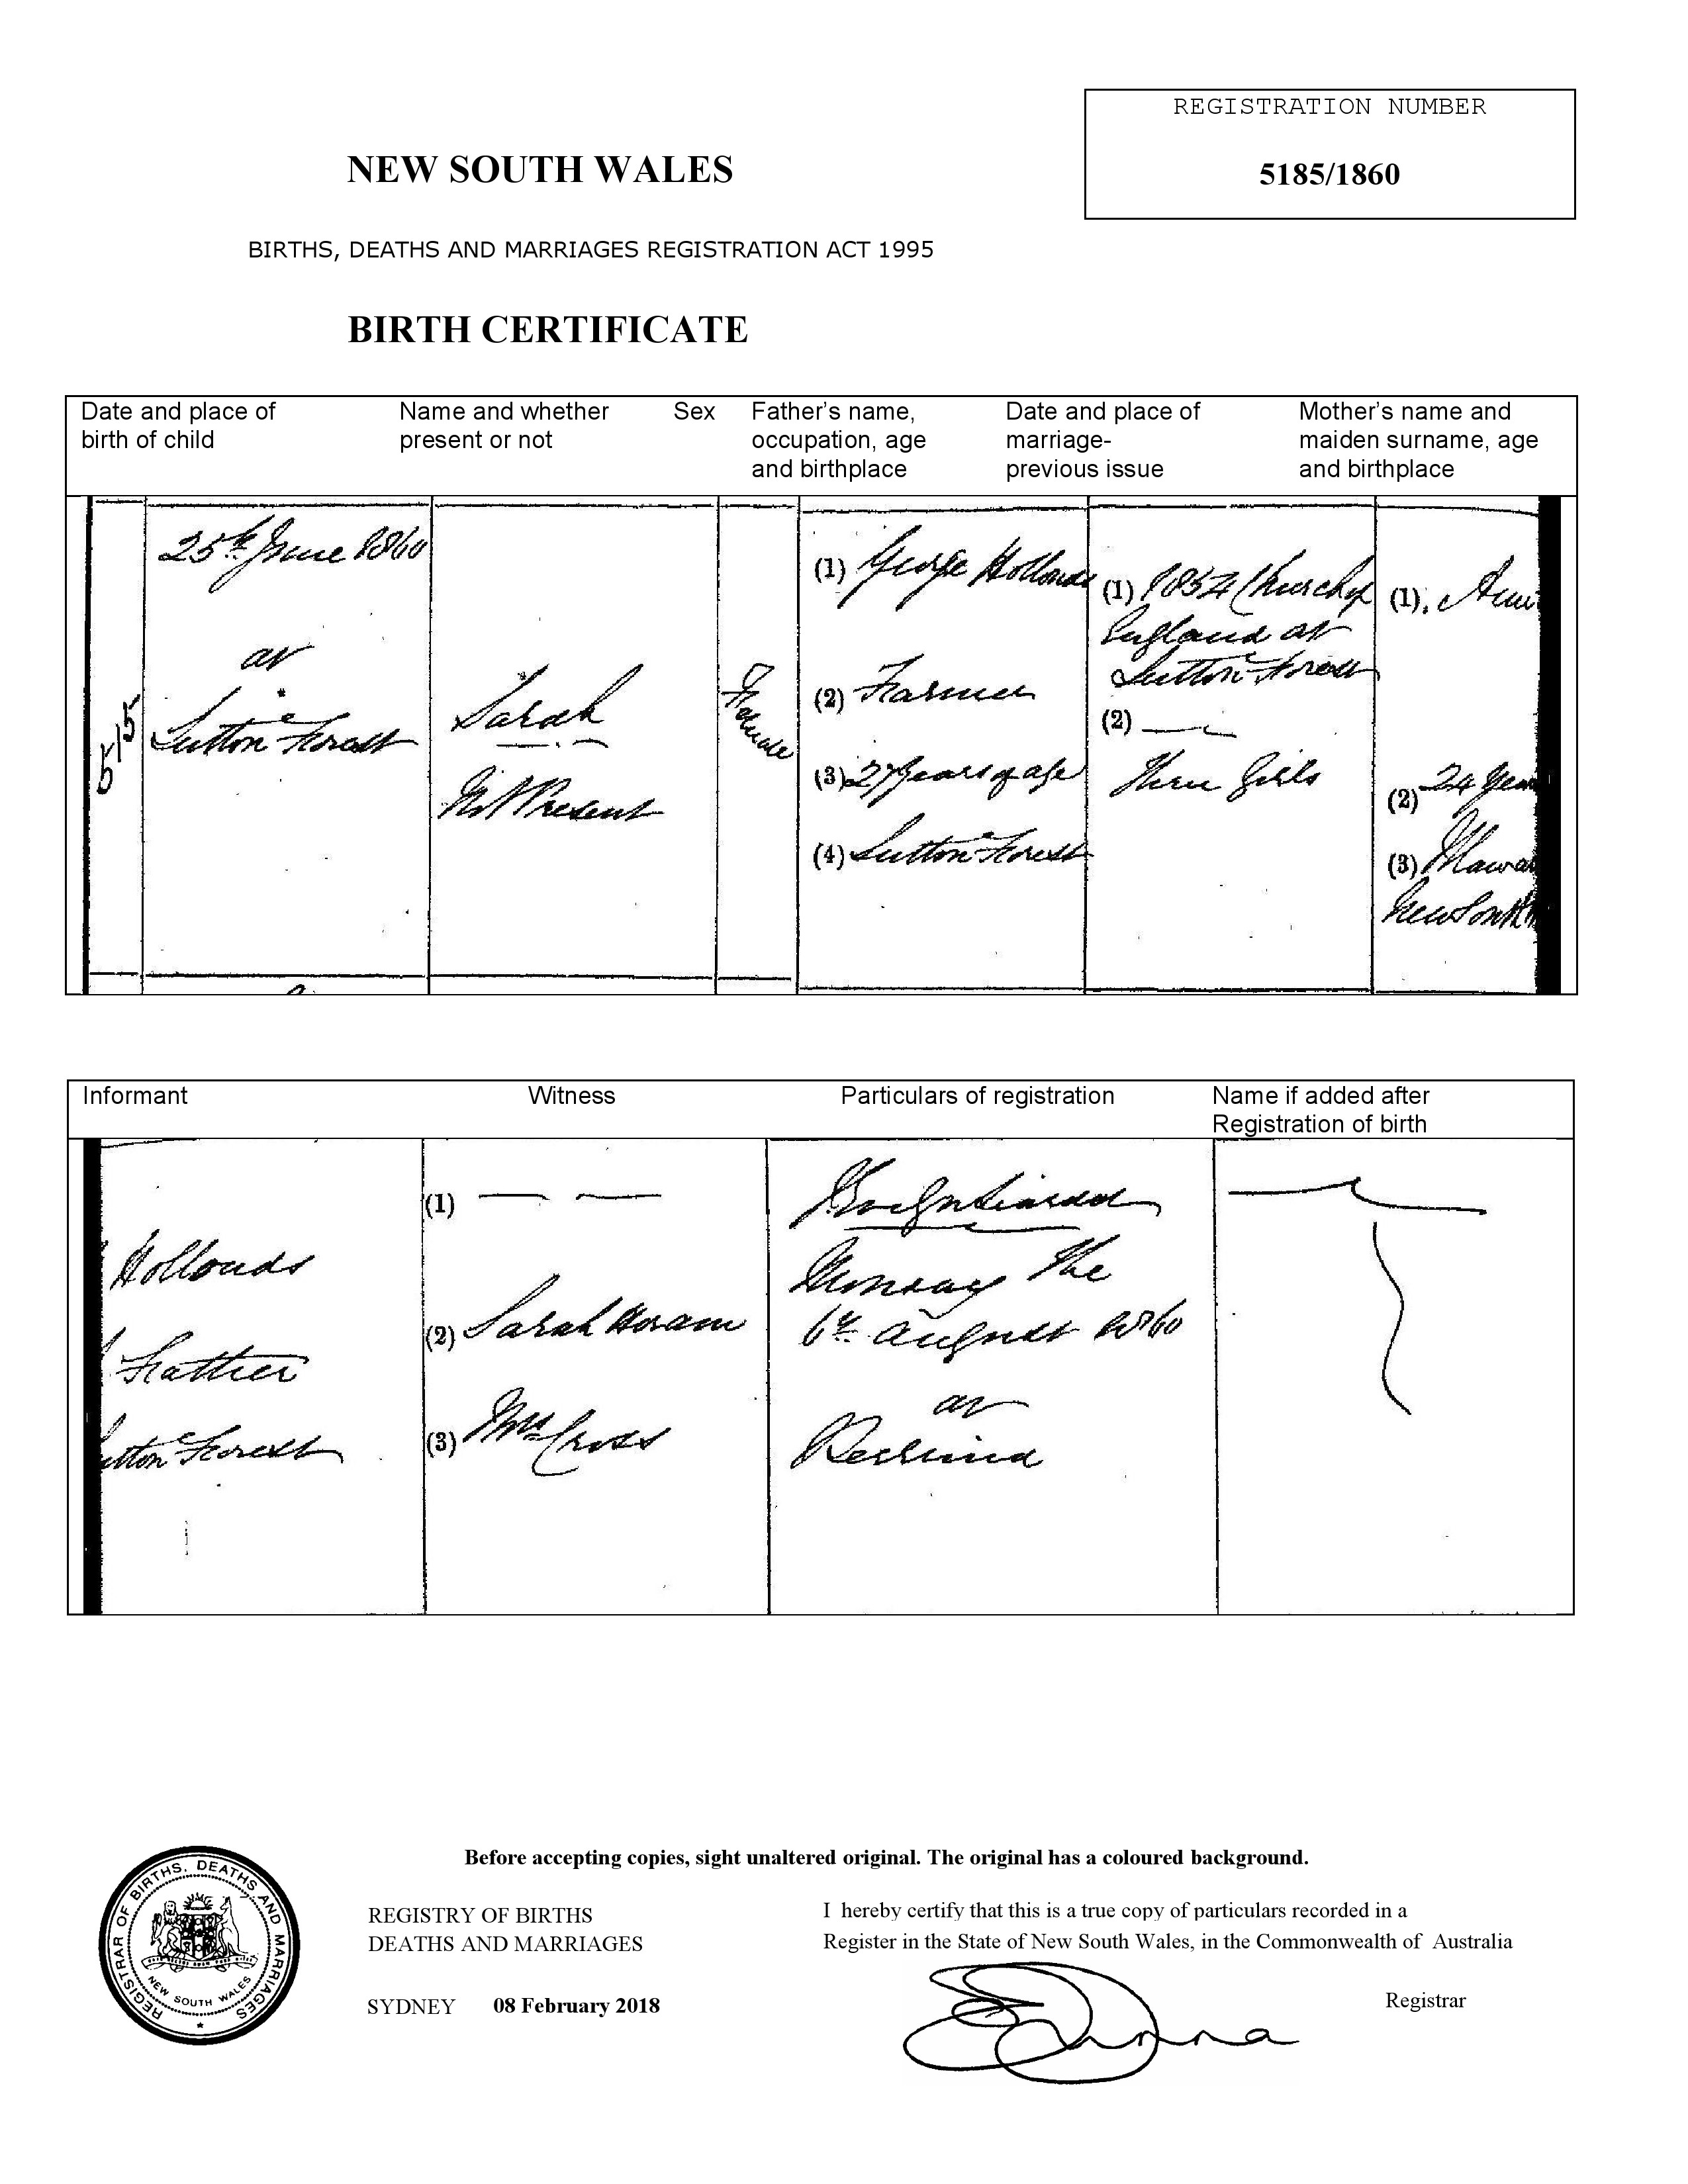 REGISTRATION NUMBER
5185/1860
NEW SOUTH WALES
BIRTHS, DEATHS AND MARRIAGES REGISTRATION ACT 1995
BIRTH CERTIFICATE
Date and place of
birth of child
Name and whether
present or not
Sex
Father's name,
occupation, age
and birthplace
Date and place of
marriage-
previous issue
Mother's name and
maiden surname, age
and birthplace
25th June 1860
at
Sutton Forest
Sarah
Not Present
Female
(1) George Hollands
(2) Farmer
(3) 27 Years of age
(4) Sutton Forest
(1) 1854 Church of
England at
Sutton Forest
(2)
Three Girls
(1)
(2) 24
(3)
New South
Informant
Witness
Particulars of registration
Name if added after
Registration of birth
Hollands
Father
utton Forest
(1)
(2) Sarah Horam
(3) Mrs Cross
Monday the
6th August 1860
at
Berrima
Before accepting copies, sight unaltered original. The original has a coloured background.
REGISTRAR OF BIRTHS, DEATHS AND MARRIAGES
NEW SOUTH WALES
REGISTRY OF BIRTHS
DEATHS AND MARRIAGES
SYDNEY 08 February 2018
I hereby certify that this is a true copy of particulars recorded in a
Register in the State of New South Wales, in the Commonwealth of Australia
Registrar